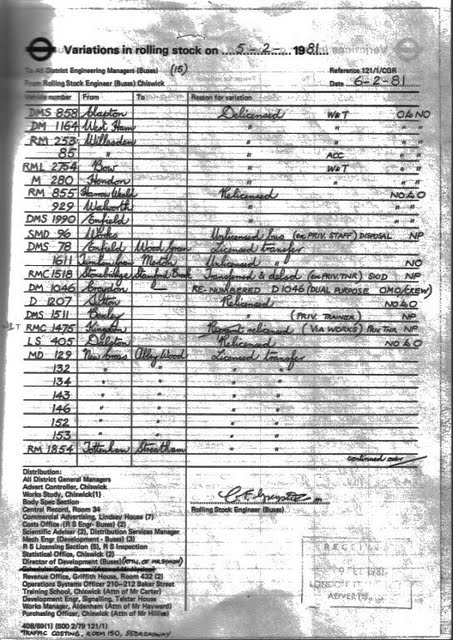 Variations in rolling stock on 5-2- 1981
To All District Engineering Managers (Buses) (15) Reference 121/1/CGR
From Rolling Stock Engineer (Buses) Chiswick Date 6-2-81
Vehicle number From To Reason for variation
DMS 858 Clapton Delicensed W&T O NO
DM 1164 West Ham " " " "
RM 253 Willesden " " " "
85 " " ACC " "
RML 2754 Bow " W&T " "
M 280 Hendon " " "
RM 855 Harrow Weald Relicensed NO LO
929 Walworth " " "
DMS 1990 Enfield " " "
SMD 96 Works Unlicensed bus (ex PRIV. STAFF) DISPOSAL NP
DMS 78 Enfield Wood Green Licensed transfer
1611 Turnham Green Mortlake Unlicensed " NO
RMC 1518 Stonebridge Stamford Brook Transferred & delsd (ex PRIV. TNR) SKID NP
DM 1046 Croydon RE-NUMBERED D1046 (DUAL PURPOSE OMO/CREW)
D 1207 Sutton Relicensed NO LO
DMS 1511 Bexley " (PRIV. TRAINER) NP
RMC 1475 Kingston relicensed (VIA WORKS) PRIV TNR NP
LS 405 Dalston Relicensed NO LO
MD 129 New Cross Abbey Wood Licensed transfer
132 " " " "
134 " " " "
143 " " " "
146 " " " "
152 " " " "
153 " " " "
RM 1854 Tottenham Streatham " "
continued over
Distribution:
All District General Managers
Advert Controller, Chiswick
Works Study, Chiswick (1)
Body Spec Section
Central Record, Room 34
Commercial Advertising, Lindsay House (7)
Costs Office (R S Engr- Buses) (2)
Scientific Adviser (2), Distribution Services Manager
Mech Engr (Development - Buses) (3)
R S Licensing Section (5), R S Inspection
Statistical Office, Chiswick (2)
Director of Development (Buses)
Revenue Office, Griffith House, Room 432 (2)
Operations Systems Officer 210-212 Baker Street
Training School, Chiswick (Attn of Mr Carter)
Development Engr, Signalling, Telstar House
Works Manager, Aldenham (Attn of Mr Hayward)
Purchasing Officer, Chiswick (Attn of Mr Hillier)
Rolling Stock Engineer (Buses)
RECEIVED
1981
LONDON
ADVERT
408/89(1) (500 2/79 121/1)
TRAFFIC COSTING, ROOM 150, 55 BROADWAY